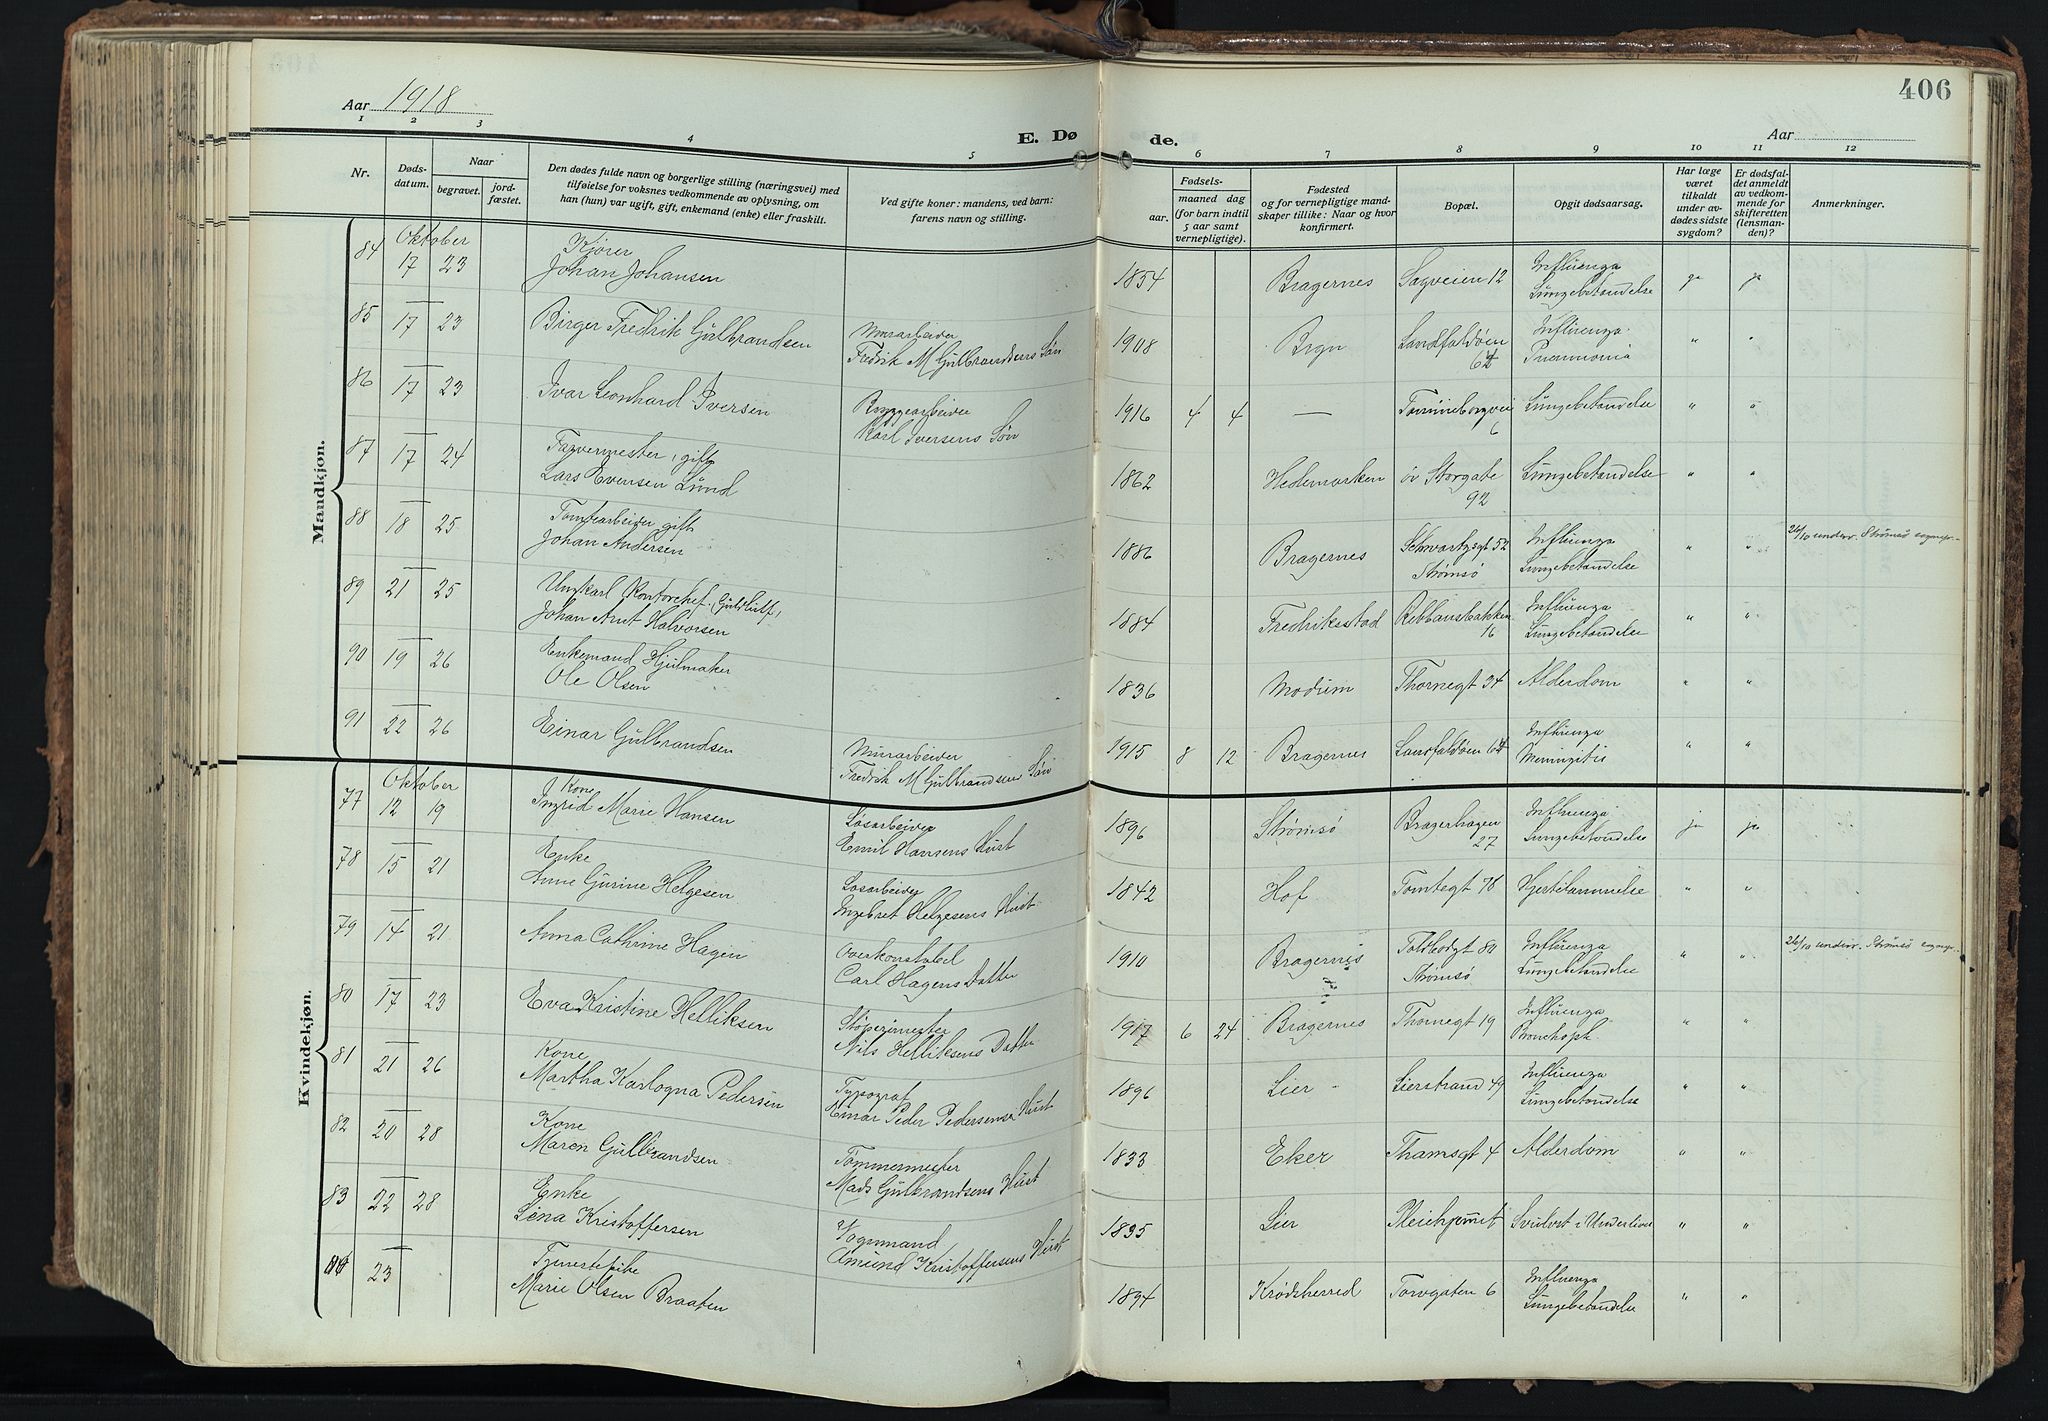 406
Aar 1918
E. Dø de.
Aar
1 2 3 4 5 6 7 8 9 10 11 12
Nr.
Døds-
datum.
Naar
begravet.
jord-
fæstet.
Den dødes fulde navn og borgerlige stilling (næringsvei) med
tilføielse for voksnes vedkommende av oplysning, om
han (hun) var ugift, gift, enkemand (enke) eller fraskilt.
Ved gifte koner: mandens, ved barn:
farens navn og stilling.
Fødsels-
aar. maaned dag
(for barn indtil
5 aar samt
vernepligtige).
Fødested
og for vernepligtige mand-
skaper tillike: Naar og hvor
konfirmert.
Bopæl.
Opgit dødsaarsag.
Har læge
været
tilkaldt
under av-
dødes sidste
sygdom?
Er dødsfal-
det anmeldt
av vedkom-
mende for
skifteretten
(lensman-
den)?
Anmerkninger.
Mandkjøn.
84 Oktober Kjører Influenza
17 23 Johan Johansen 1854 Bragernes Sagveien 12 Lungebetændelse ja ja
85 17 23 Birger Fredrik Gulbrandsen Murarbeider
Fredrik M Gulbrandsens Søn 1908 Landfaldøen 64 Influenza
Pneumonia " "
86 17 23 Ivar Leonhard Iversen Bryggearbeider
Karl Iversens Søn 1916 4 4 — 6 Lungebetændelse " "
87 17 24 Farvermester, gift
Lars Evensen Lund 1862 Hedemarken öv Storgate
92 Lungebetændelse " "
88 18 25 Tomtearbeider, gift
Johan Andersen 1886 Bragernes Schwartzsgt 52
Strømsø Influenza
Lungebetændelse " " 26/10 underr. Strømsø sognepr.
89 21 25 Ungkarl Kontorchef
Johan Arnt Halvorsen 1884 Fredriksstad 16 Influenza
Lungebetændelse " "
90 19 26 Enkemand Hjulmaker
Ole Olsen 1836 Modum Thornegt 34 Alderdom " "
91 22 26 Einar Gulbrandsen Murarbeider
Fredrik M Gulbrandsens Søn 1915 8 12 Bragernes Landfaldøen 64 Influenza
Meningitis " "
Kvindekjøn.
77 Oktober Kone
12 19 Ingrid Marie Hansen Løsarbeider
Emil Hansens Hust 1896 Strømsø Bragerhagen
27 Influenza
Lungebetændelse ja ja
78 15 21 Enke
Anne Gurine Helgesen Løsarbeider
Ingebret Helgesens Hust 1842 Hof Tomtegt 78 Hjertelammelse " "
79 14 21 Anna Cathrine Hagen Overkonstabel
Carl Hagens Datter 1910 Bragernes Toldbodgt 80
Strømsø Influenza
Lungebetændelse " " 26/10 underr. Strømsø sognepr.
80 17 23 Eva Kristine Helliksen Støperimester
Nils Helliksens Datter 1917 6 24 Bragernes Thornegt 19 Influenza
" "
81 21 26 Kone
Martha Karlogna Pedersen Typograf
Peder Pedersens Hust 1896 Lier Lierstrand 49 Influenza
Lungebetændelse " "
82 20 28 Kone
Maren Gulbrandsen Tømmermester
Mads Gulbrandsens Hust 1833 Eker Thamsgt 4 Alderdom " "
83 22 28 Enke
Lina Kristoffersen Vognmand
Amund Kristoffersens Hust 1835 Lier Svulst i Underlivet " "
23 Tjenestepike
Marie Olsen Braaten 1894 Krødsherred Torvgaten 6 Influenza
Lungebetændelse " "